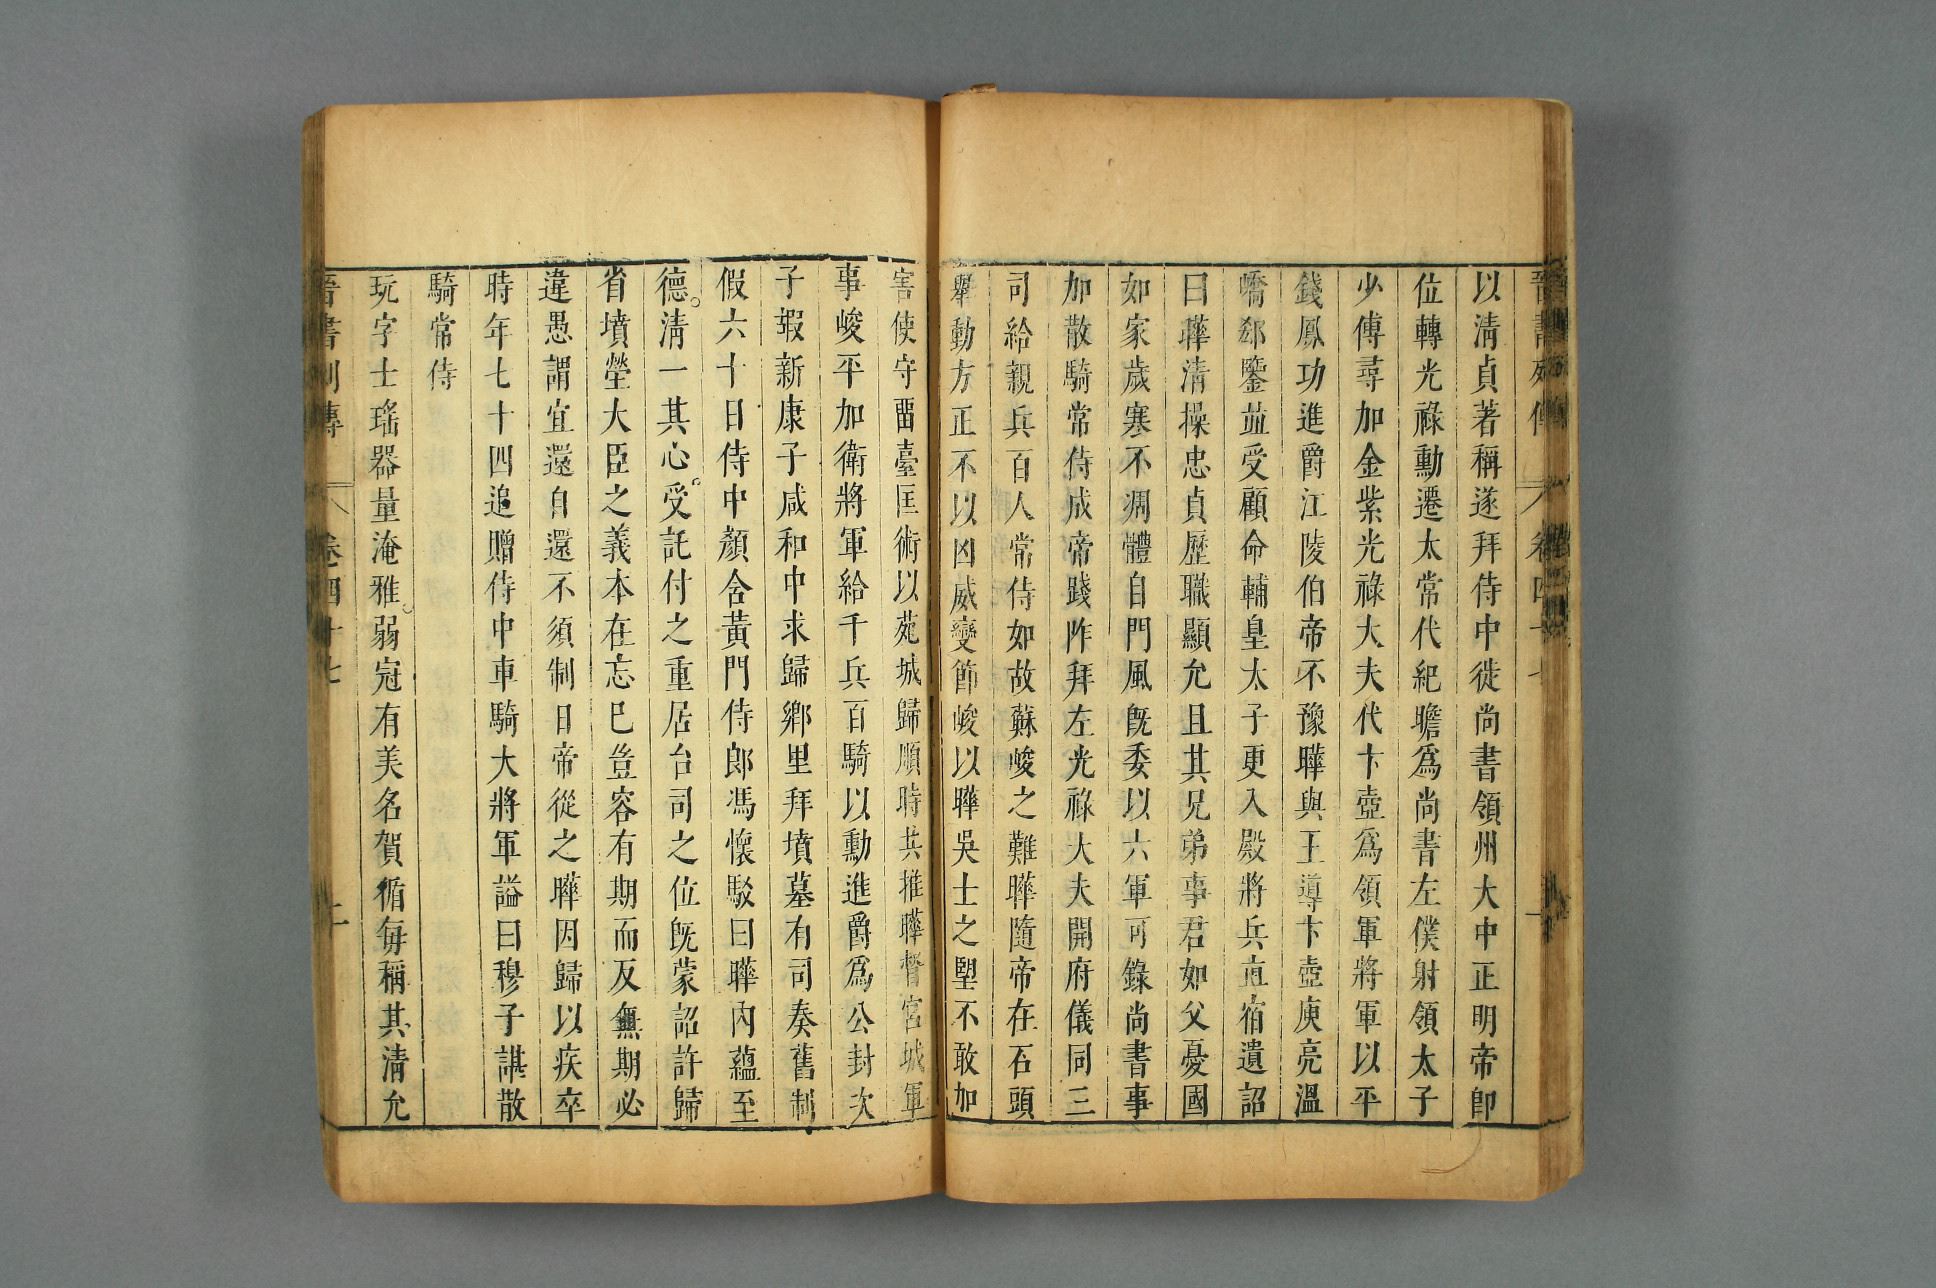 以淸貞著稱遂拜侍中徙尚書領州大中正明帝卽
位轉光祿勳遷太常代紀瞻爲尚書左僕射領太子
少傅尋加金紫光祿大夫代卞壺爲領軍將軍以平
錢鳳功進爵江陵伯帝不豫曄與王導卞壺庾亮溫
嶠郄鑒並受顧命輔皇太子更入殿將兵直宿遺詔
曰曄淸操忠貞歷職顯允且其兄弟事君如父憂國
如家歲寒不凋體自門風旣委以六軍可錄尚書事
加散騎常侍成帝踐阼拜左光祿大夫開府儀同三
司給親兵百人常侍如故蘇峻之難曄隨帝在石頭
舉動方正不以凶威變節峻以曄吳士之望不敢加
害使守留臺匡術以苑城歸順時共推曄督宮城軍
事峻平加衛將軍給千兵百騎以勳進爵爲公封次
子嘏新康子咸和中求歸鄉里拜墳墓有司奏舊制
假六十日侍中顏含黃門侍郎馮懷駁曰曄內蘊至
德淸一其心受託付之重居台司之位旣蒙詔許歸
省墳塋大臣之義本在忘己豈容有期而反無期必
違愚謂宜還自還不須制日帝從之曄因歸以疾卒
時年七十四追贈侍中車騎大將軍謚曰穆子諶散
騎常侍
玩字士瑤器量淹雅弱冠有美名賀循每稱其淸允
晉書列傳 卷四十七 二